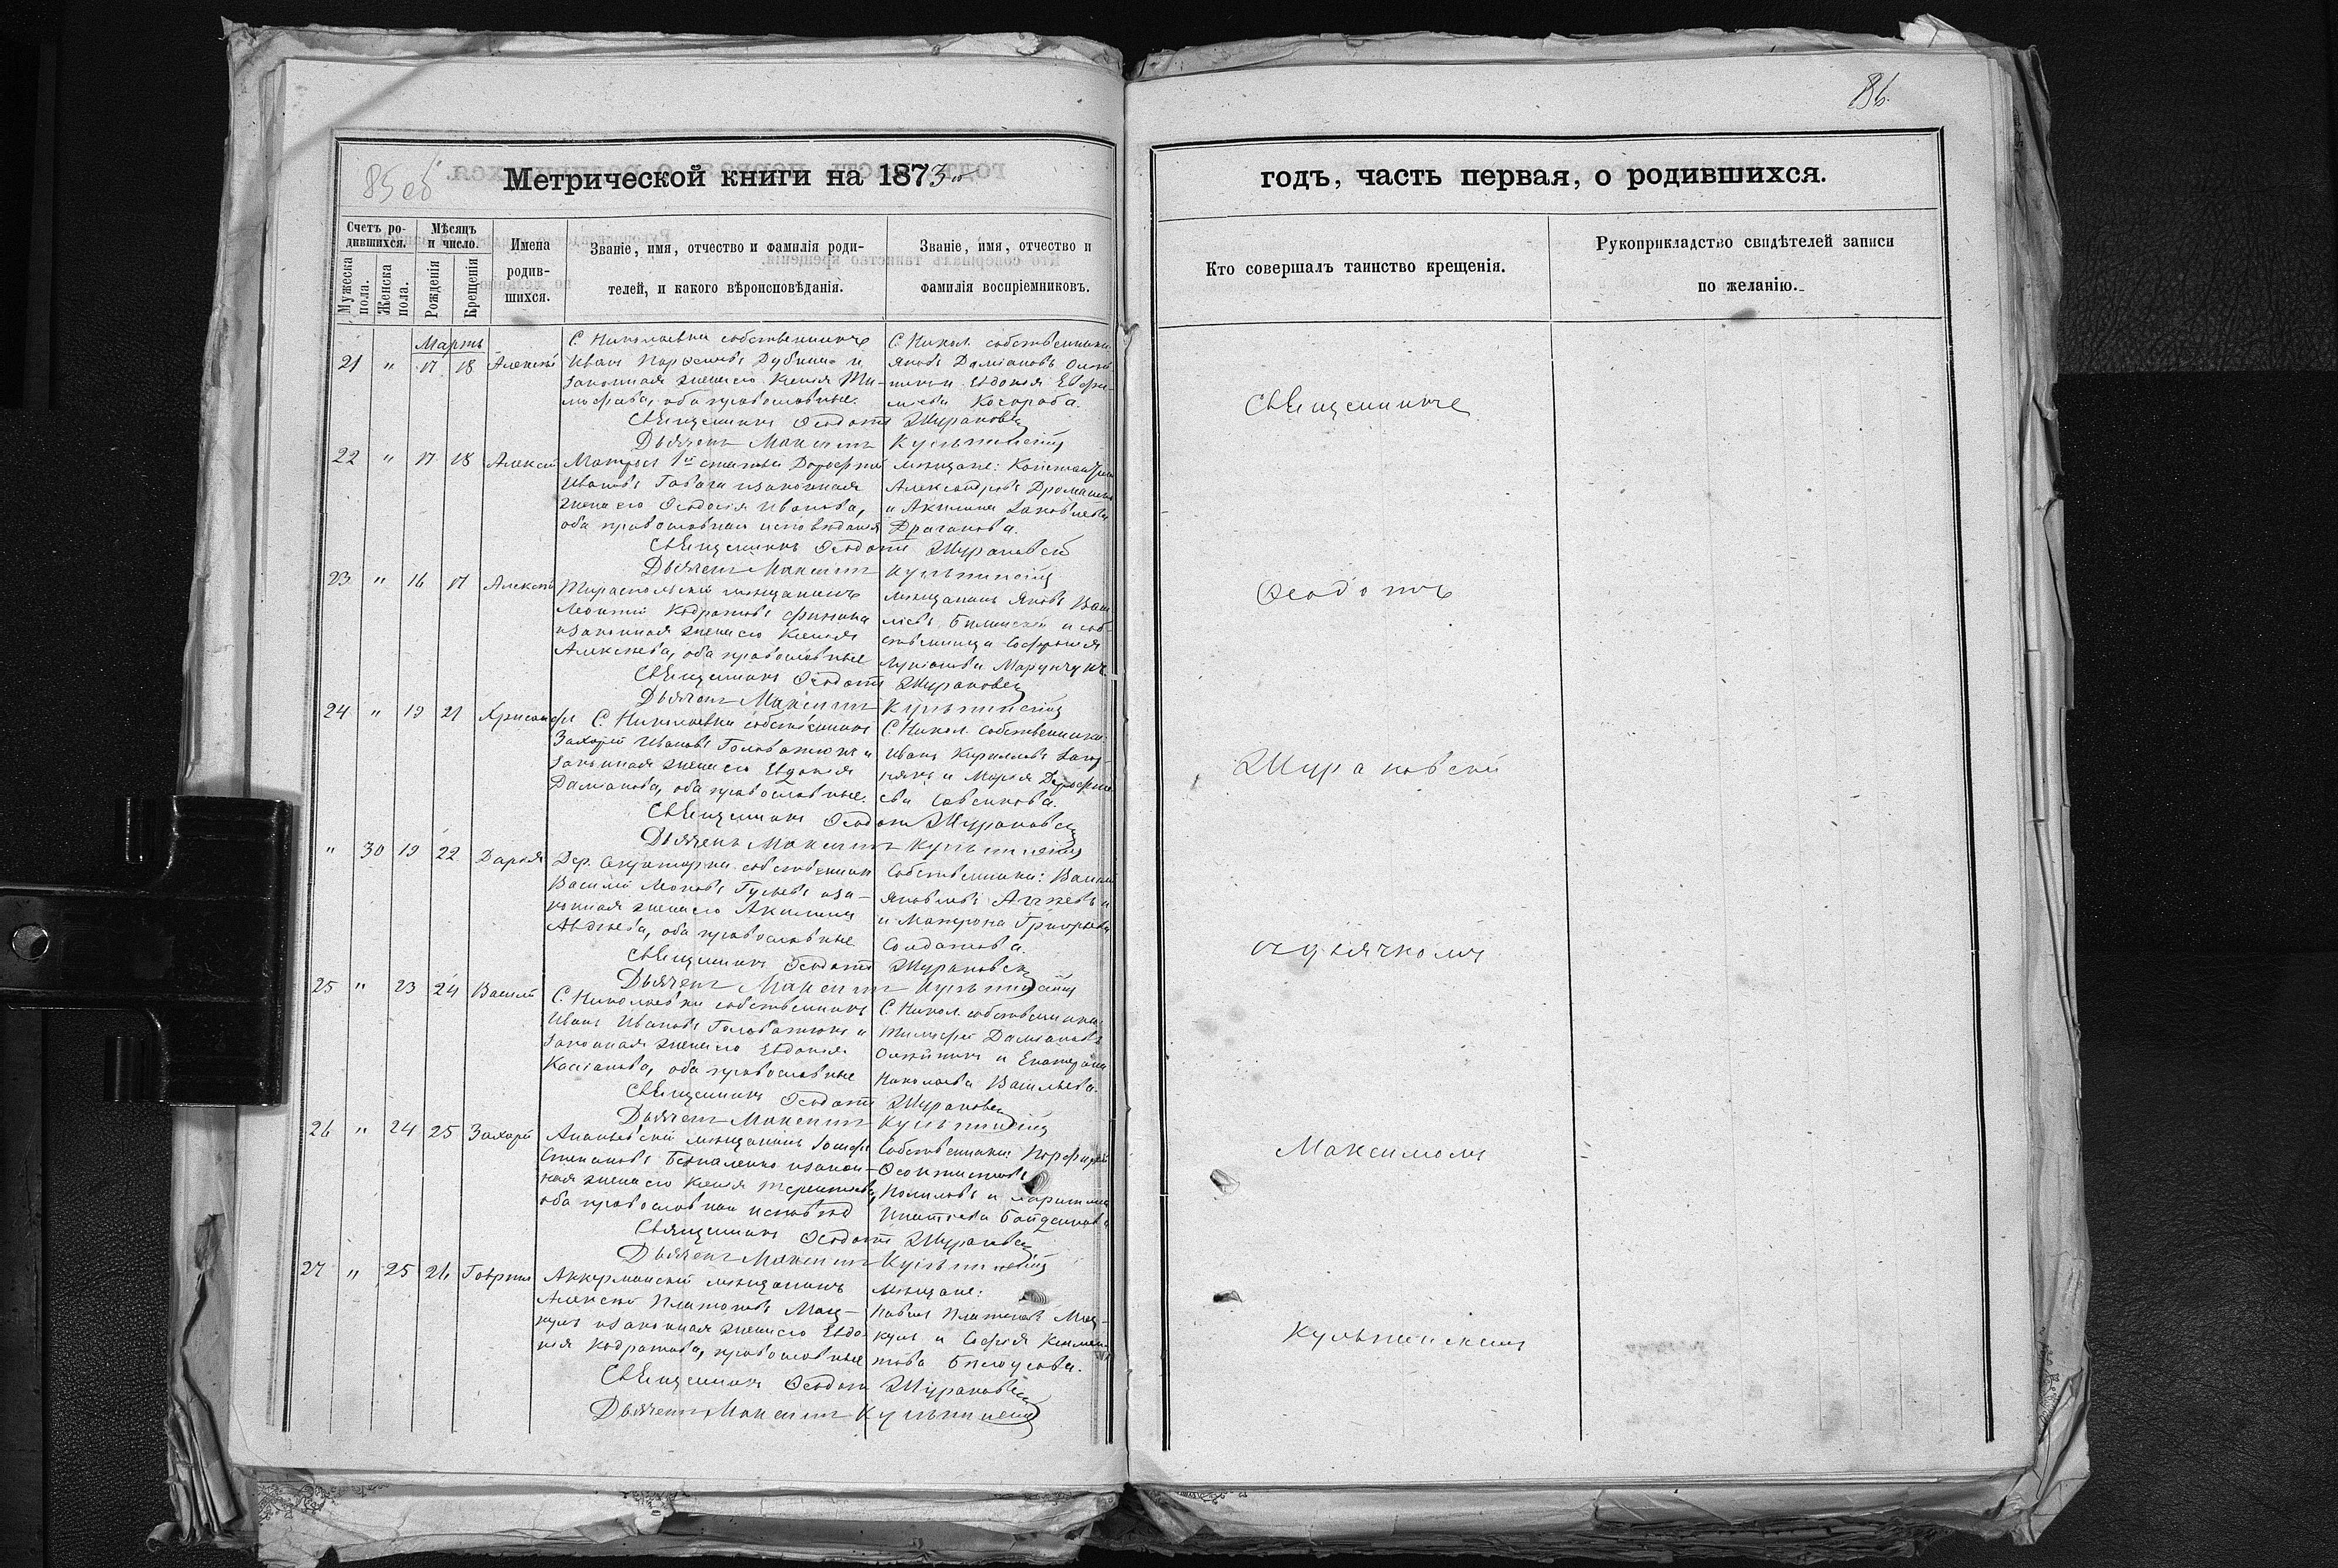 85 об
Метрической книги на 1873й
Счетъ родившихся.
Мѣсяцъ и число.
Имена родившихся.
Званіе, имя, отчество и фамилія родителей, и какого вѣроисповѣданія.
Званіе, имя, отчество и фамилія воспріемниковъ.
Мужеска пола.
Женска пола.
Рожденія
Крещенія
Мартъ
21 " 17 18 Алексѣй
С. Николаевки собственникъ
Иванъ
законная жена его Ксенія Ти-
мофеева, оба православные.
С. Никол. собственники
Яковъ Даміановъ Олей-
никъ и Евдокія Ефи-
мова
Священникъ Ѳеодотъ Жураковскій
Дьячекъ Максимъ Кульчинскій
22 " 17 18 Алексѣй
Матросъ 1й статьи Дорофей
Ивановъ и законная
жена его Ѳеодосія Иванова,
оба православнаго исповѣданія
мѣщане: Константинъ
Александровъ
и Акилина Яковлева
Драганова.
Священникъ Ѳеодотъ Жураковскій
Дьячекъ Максимъ Кульчинскій
23 " 16 17 Алексѣй
Тираспольскій мѣщанинъ
Леонтій Кодратовъ
и законная жена его Ксенія
Алексѣева, оба православные
мѣщанинъ Яковъ Васи-
льевъ и соб-
ственница Софронія
Лукіанова Марунчукъ.
Священникъ Ѳеодотъ Жураковскій
Дьячекъ Максимъ Кульчинскій
24 " 19 21 Хрисанфъ
С. Николаевки собственникъ
Захарій Ивановъ Головатюкъ и
законная жена его Евдокія
Даміанова, оба православные.
С. Никол. собственники
Иванъ Кирилловъ
и Марія Дорофее-
ва Савенкова.
Священникъ Ѳеодотъ Жураковскій
Дьячекъ Максимъ Кульчинскій
" 30 19 22 Дарія
Дер. собственникъ
Василій Гусевъ и за-
конная жена его Акилина
Авдѣева, оба православные
Собственники: Василій
Яковлевъ
и Матрона Григорьева
Солдатова.
Священникъ Ѳеодотъ Жураковскій
Дьячекъ Максимъ Кульчинскій
25 " 23 24 Василій
С. Николаевки собственникъ
Иванъ Ивановъ Головатюкъ и
законная жена его Евдокія
Касіанова, оба православные
С. Никол. собственники
Тимофей Даміановъ
Олейникъ и Екатерина
Николаева Васильева.
Священникъ Ѳеодотъ Жураковскій
Дьячекъ Максимъ Кульчинскій
26 " 24 25 Захарій
Ананьевскій мѣщанинъ Іосифъ
Степановъ и закон-
ная жена его Ксенія Терентьева,
оба православнаго исповѣд
Собственники: Порфирій
Ѳеоктистовъ
и Харитина
Игнатьева
Священникъ Ѳеодотъ Жураковскій
Дьячекъ Максимъ Кульчинскій
27 " 25 26 Гавріилъ
Аккерманскій мѣщанинъ
Алексѣй Платоновъ Мац-
куль и законная жена его Евдо-
кія Кодратова, православные
мѣщане:
Павелъ Платоновъ Мац-
куль и Софія Климен-
това Билоусова.
Священникъ Ѳеодотъ Жураковскій
Дьячекъ Максимъ Кульчинскій
86.
годъ, часть первая, о родившихся.
Кто совершалъ таинство крещенія.
Рукоприкладство свидѣтелей записи по желанію.
Священникъ
Ѳеодотъ
Жураковскій
съ дьячкомъ
Максимомъ
Кульчинскимъ